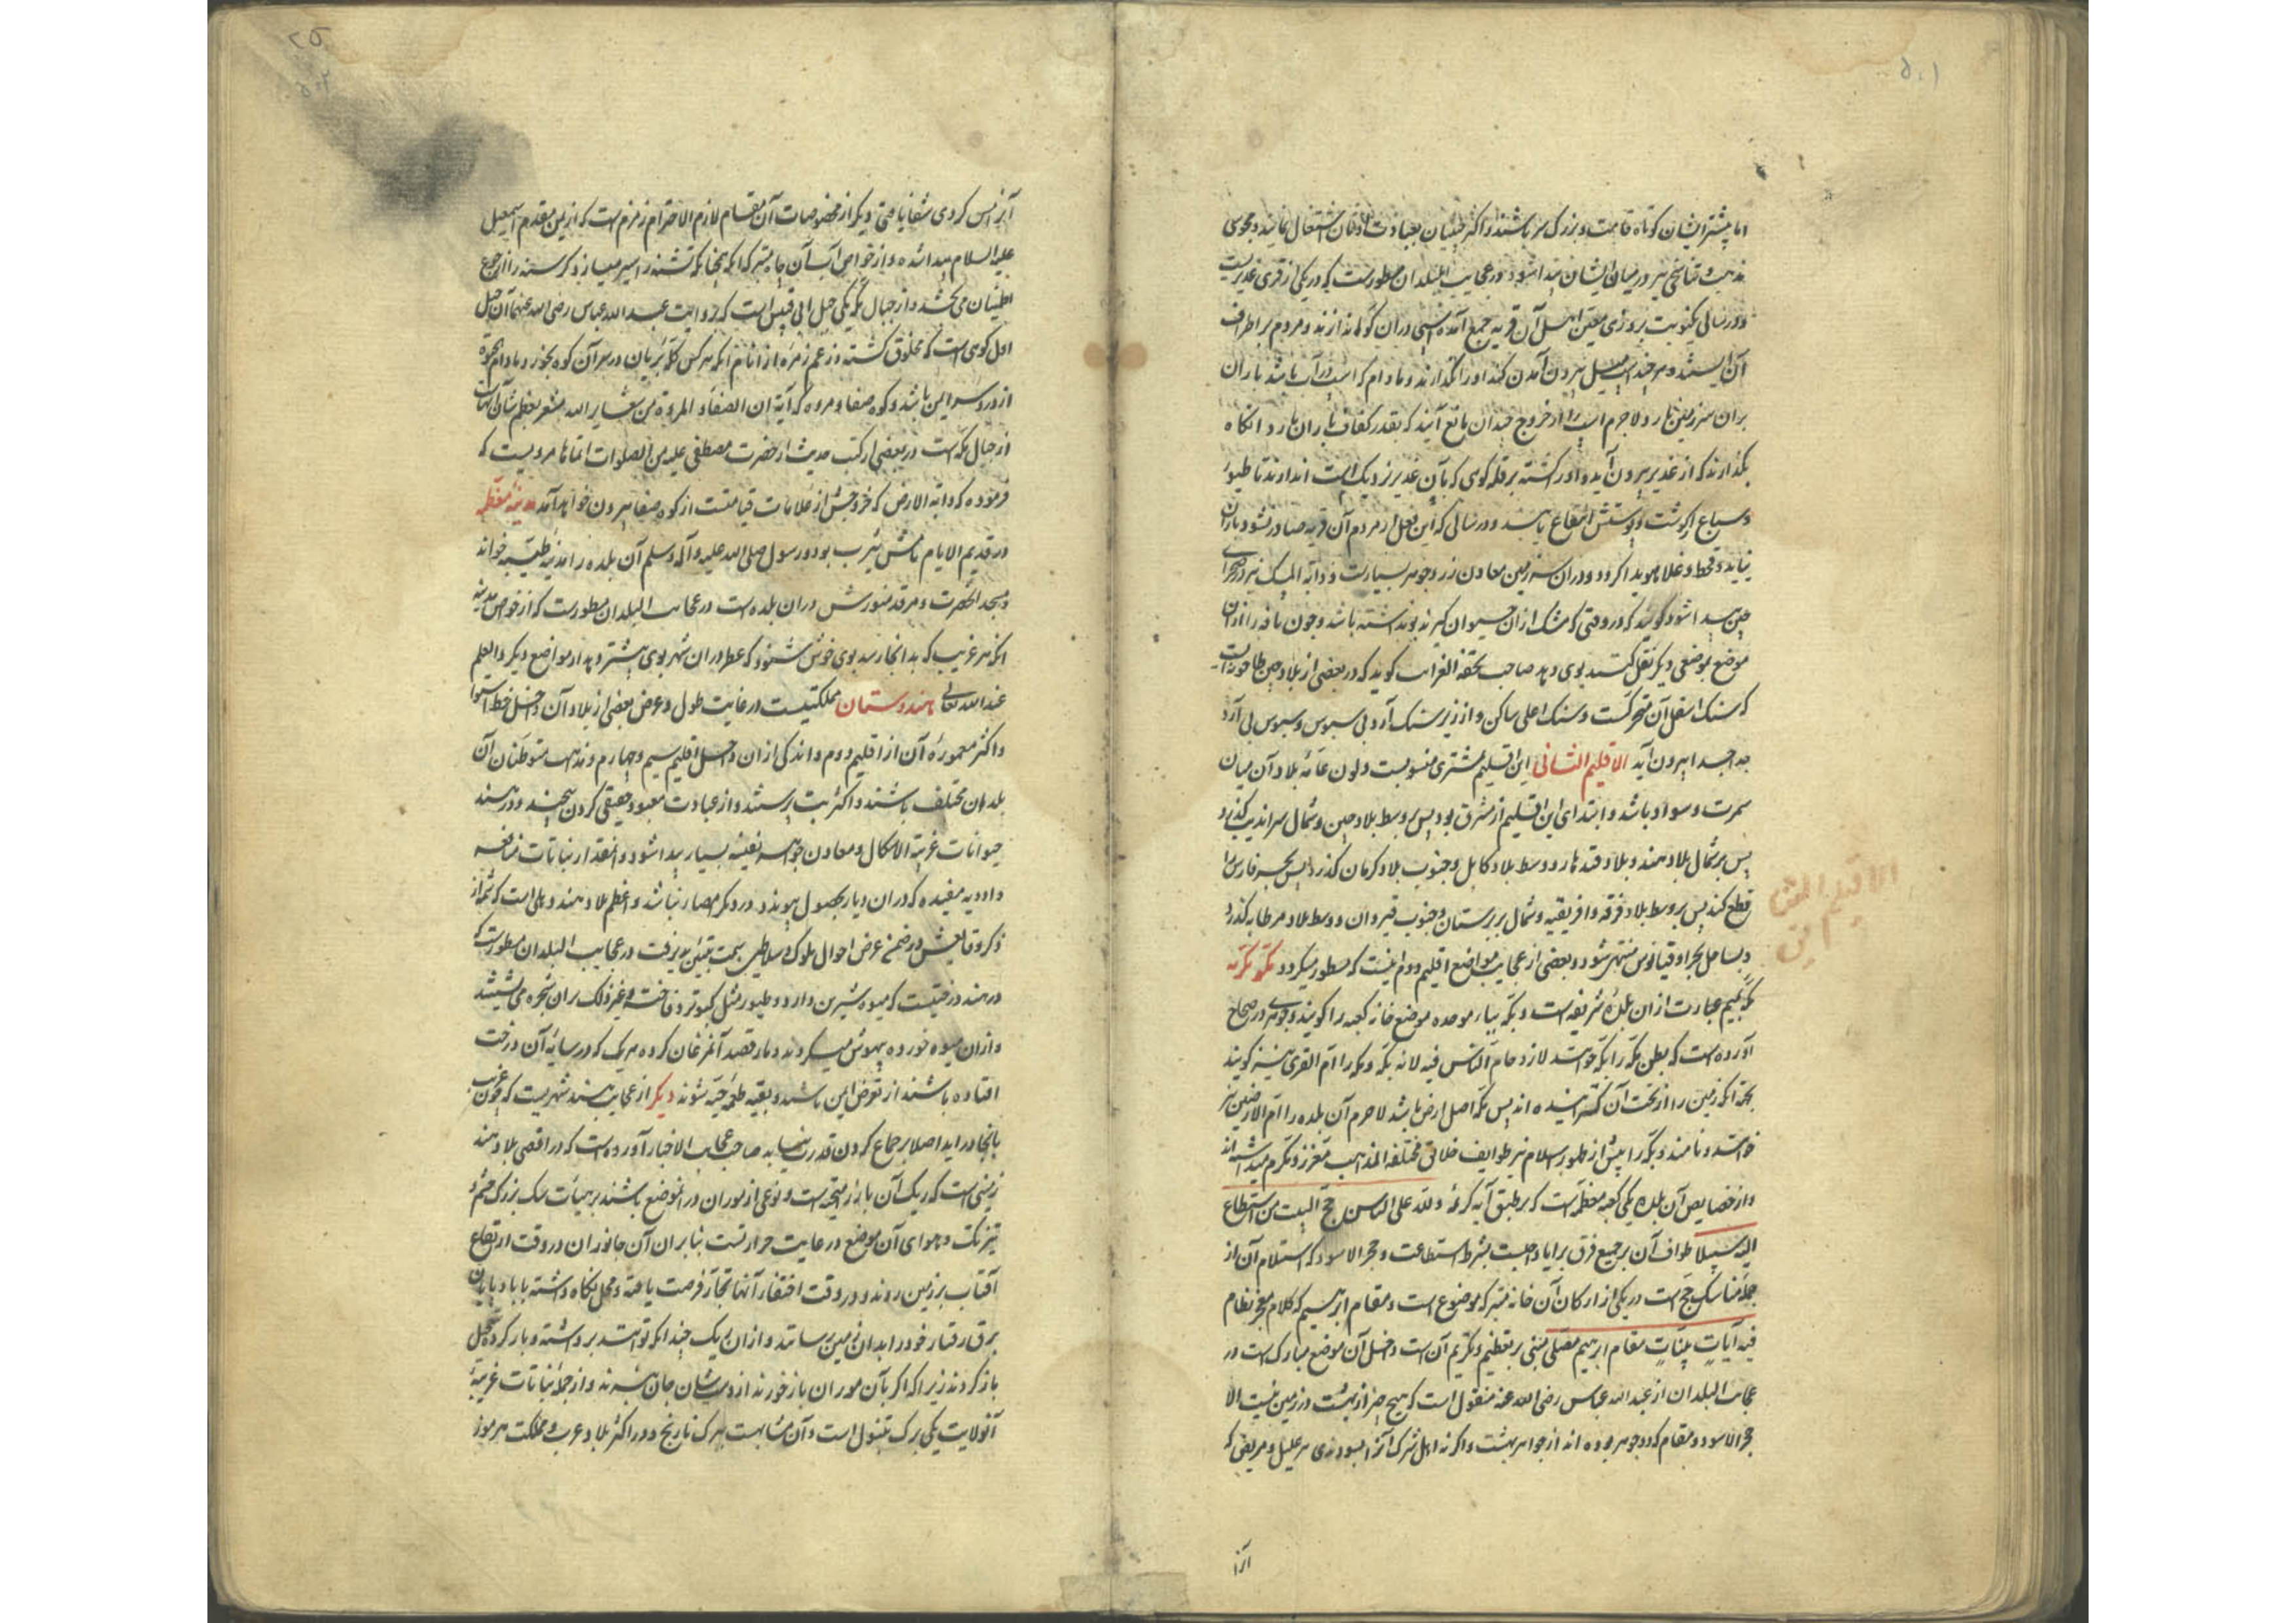 ۵۰۱
اما بیشتر ایشان کوتاه قامت و بزرگ سر باشند و اکثر چینیان بعبادت اوثان اشتغال نمایند و مجوسی
مذهب و تناسخی نیز در میان ایشان پیدا شود و در عجایب البلدان مسطورست که در یکی از قری غدیریست
و در سالی یکنوبت بروزی معین اهل آن قریه جمع آمده اسپی در آن کولاب اندازند و مردم بر اطراف
آن ایستند و هر چند اسپ میل بیرون آمدن کند او را نگذارند و مادام که اسپ در آب باشد باران
بران سرزمین بارد و لاجرم اسپ را از خروج چندان مانع آیند که بقدر کفاف باران بارد و آنکاه
بکذارند که از غدیر بیرون آید و او را کشته بر قله کوهی که بآن غدیر نزدیک است اندازند تا طیور
و سباع از گوشت و پوستش انتفاع یابند و در سالی که این فعل از مردم آن قریه صادر نشود باران
نیاید و قحط و غلا هویدا کردد و در آن سرزمین معادن زر و جوهر بسیارست و دابة المسک نیز در صحرای
چین پیدا شود گویند که در وقتی که مشک از آن حیوان گیرند بوی نداشته باشد و چون نافه را از آن
موضع بموضعی دیگر نقل کنند بوی دهد صاحب تحفة الغرائب کوید که در بعضی از بلاد چین طاحونه ایست
که سنک اسفل آن متحرکست و سنک اعلی ساکن و از زیر سنک آرد بی سبوس و سبوس بی آرد
جدا جدا بیرون آید الاقلیم الثانی این اقلیم بمشتری منسوبست و لون عامه بلاد آن میان
سمرت و سواد باشد و ابتدای این اقلیم از مشرق بود پس بر وسط بلاد چین و شمال سراندیب گذرد
پس بر شمال بلاد هند و بلاد قندهار و وسط بلاد کابل و جنوب بلاد کرمان گذرد پس بحر فارس را
قطع کند پس بر وسط بلاد فرقه و افریقیه و شمال بربرستان و جنوب قیروان و وسط بلاد مرطابه گذرد
و بساحل بحر اوقیانوس منتهی شود و بعضی از عجایب مواضع اقلیم دوم اینست که مسطور میکردد مکه مکرمه
مکه بمیم عبارت از آن بلده شریفه است و بکه بباء موحده موضع خانه کعبه را گویند و جوهری در صحاح
آورده است که بطن مکه را بکه خوانند لازدحام الناس فیه لانه بکه و مکه را ام القری نیز گویند
بجهة آنکه زمین را از تحت آن کسترانیده اند پس مکه اصل ارض باشد لاجرم آن بلده را ام الارضین نیز
خوانند و نامند و مکه را پیش از ظهور اسلام نیز طوایف خلایق مختلفة المذاهب معزز و مکرم میداشته اند
و از خصایص آن بلده یکی کعبه معظمه است که بر طبق آیه کریمه و لله علی الناس حج البیت من استطاع
الیه سبیلا طواف آن بر جمیع فرق برایا واجبست بشرط استطاعت و حجر الاسود که استلام آن از
جمله مناسک حج است در یکی از ارکان آن خانه متبرکه موضوع است و مقام ابرهیم که کلام معجز نظام
فیه آیات بینات مقام ابرهیم مصلی مبنی بر تعظیم و تکریم آن است داخل آن موضع مبارک است در
عجایب البلدان از عبد الله عباس رضی الله عنه منقول است که هیچ چیز از بهشت در زمین نیست الا
حجر الاسود و مقام که دو جوهر بوده اند از جواهر بهشت و اگر نه اهل شرک آنرا بسودندی هر علیل و مریضی که
آنرا
الاقلیم الثانی
آنرا مس کردی شفا یافتی و دیگر از مخصوصات آن مقام لازم الاحترام زمزم است که از یمن مقدم اسمعیل
علیه السلام پیدا شده و از خواص آب آن چاه متبرکه آنکه همچنانکه تشنه را سیر میسازد گرسنه را از جوع
اطمینان می بخشد و از جبال مکه یکی جبل ابی قبیس است که بروایت عبد الله عباس رضی الله عنهما آن جبل
اول کوهی است که مخلوق کشته و زعم زمره از انام آنکه هر کس کله بریان در سر آن کوه بخورد مادام الحیوة
از درد سر ایمن باشد و کوه صفا و مروه که آیه ان الصفا و المروة من شعایر الله مشعر بعظم شان آنهاست
از جبال مکه است در بعضی از کتب حدیث از حضرت مصطفی علیه من الصلوات اتمها مرویست که
فرموده که دابة الارض که خروجش از علامات قیامتست از کوه صفا بیرون خواهد آمد مدینه معظمه
در قدیم الایام نامش یثرب بود و رسول صلی الله علیه و آله وسلم آن بلده را مدینه طیبه خواند
و مسجد آنحضرت و مرقد منورش در آن بلده است در عجایب البلدان مسطورست که از خواص مدینه
آنکه هر غریب که بدانجا رسد بوی خوش شنود که عطر در آن شهر بوی بیشتر دهد از مواضع دیگر و العلم
عند الله تعالی هندوستان مملکتیست در غایت طول و عرض بعضی از بلاد آن داخل خط استوا
و اکثر معموره آن از اقلیم دوم و اندکی از آن داخل اقلیم سیم و چهارم و مذهب متوطنان آن
بلدان مختلف باشند و اکثر بت پرستند و از عبادت معبود حقیقی گردن پیچند و در هند
حیوانات غریبة الاشکال و معادن جواهر نفیسه بسیار پیدا شود و آنمقدار نباتات نافعه
و ادویه مفیده که در آن دیار بحصول پیوندد در دیگر امصار نباشد و اعظم بلاد هند دهلی است که شمه از
ذکر وقایعش در ضمن عرض احوال ملوک و سلاطین سمت تبیین پذیرفت در عجایب البلدان مسطورست که
در هند درختیست که میوه شیرین دارد و طیور مثل کبوتر و فاخته و غیر ذلک بران شجره می نشینند
و از آن میوه خورده بیهوش میکردند و مار قصد آنمرغان کرده هر یک که در سایه آن درخت
افتاده باشند از تعرض ایمن باشند و بقیه طعمه حیه شوند دیگر از عجایب هند شهریست که چون غریب
بآنجا درآید اصلا بر جماع کردن قدرت نیابد صاحب عجایب الاخبار آورده است که در اقصی بلاد هند
زمینی است که ریک آن با زر آمیخته است و نوعی از موران در آنموضع باشند بر هیأت سک بزرگ جثه و
تیز تک و هوای آن موضع در غایت حرارتست بنا بران آن جانوران در وقت ارتفاع
آفتاب بزیر زمین روند و در وقت اختفاء آنها تجار فرصت یافته و محل نگاه داشته با بادپایان
برق رفتار خود را بدان زمین رسانند و از آن ریک چندانکه توانند برداشته و بار کرده بتعجیل
باز گردند زیرا که اگر بآن موران باز خورند از دست ایشان جان نبرند و از جمله نباتات غریبه
آنولایت یکی برک تنبول است و آن مشابهست ببرک نارنج و در اکثر بلاد عرب و مملکت هرموز